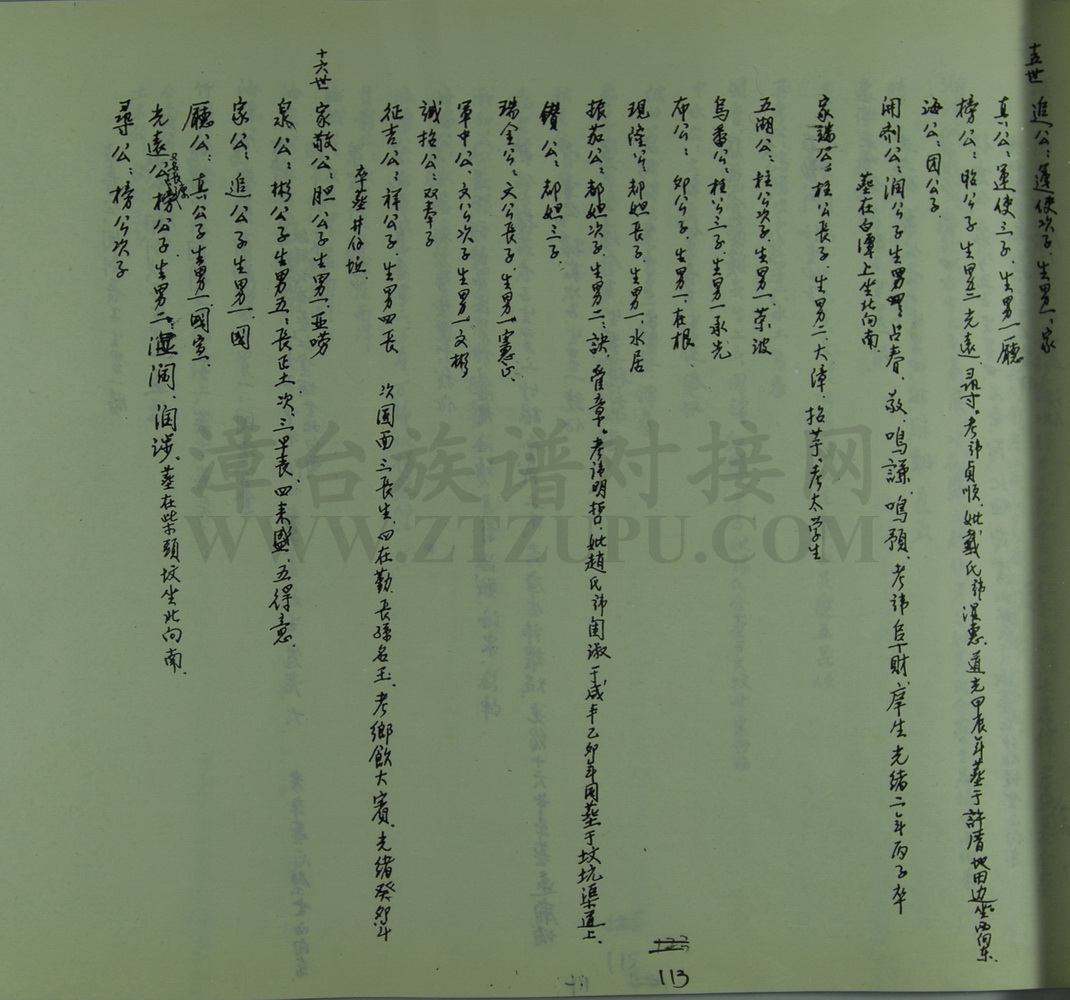 十五世 進公：運使次子，生男一，家
真公：運使三子，生男一廳
榜公：昭公子，生男二，光遠，尋。考諱貞順，妣戴氏諱淑惠，道光甲辰年葬于許厝地田边坐西向東。
海公：因公子。
開劑公：润公子，生男四，占春，敬，鳴謙，鳴預，考諱阜財，庠生光緒二年丙子卒
葬在白潭上坐北向南
家瑞公：柱公長子，生男二，大漳，招芋，考太学生
五湖公：柱公次子，生男一，荣波
烏番公：柱公三子，生男一承先
布公：卯公子，生男一，在根
現陸公：都妲長子，生男一，水居
振茹公：都妲次子，生男二：訣，奎章。考諱明哲，妣趙氏諱閨淑于咸丰乙卯年同葬于坟坑渠道上。
鑽公：都妲三子，
瑞全公：文公長子，生男一憲正
軍中公：文公次子生男一文彬
誠招公：双奉子
征吉公：祥公子，生男四長 次圆面，三長生，四在勤，長孫名玉，考鄉飲大賓，光緒癸卯年
卒葬井仔坵
十六世 家敬公：胆公子生男一，亚嘮
泉公：彬公子生男五：長正土，次，三早丧，四来盛，五得意
家公：進公子生男一，國
廳公：真公子生男一，國宣
光遠公：榜公子，生男二，溫润，润涉，葬在柴頭坟坐北向南
尋公：榜公次子
113
漳台族谱对接网
WWW.ZTZUPU.COM